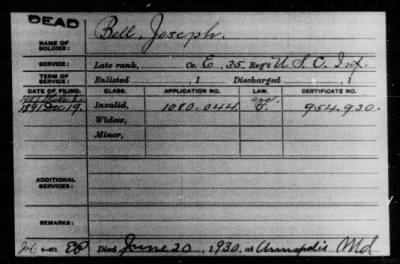 DEAD
NAME OF SOLDIER: Bell, Joseph.
SERVICE: Late rank, Co. E, 35 Reg't U. S. C. Inf.
TERM OF SERVICE: Enlisted , 1 Discharged , 1
DATE OF FILING. CLASS. APPLICATION NO. LAW. CERTIFICATE NO.
1891 Dec 19. Invalid, 1080.044. 954.930.
Widow,
Minor,
ADDITIONAL SERVICES:
REMARKS:
Died June 20, 1930, at Annapolis Md